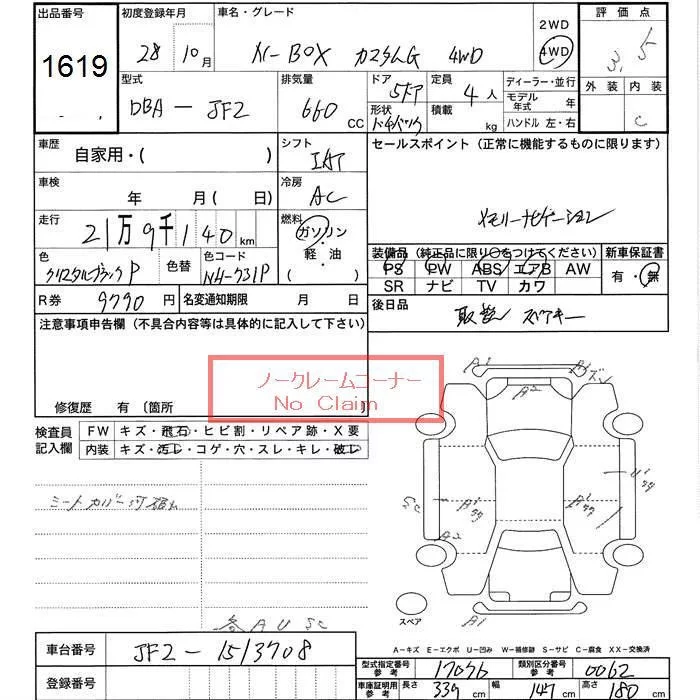 出品番号
1619
初度登録年月
28 10月
車名・グレード
N-BOX カスタムG 4WD
2WD
4WD
評価点
3.5
外装 内装
C
型式
DBA-JF2
排気量
660 CC
ドア
5ドア
形状
定員
4人
積載
kg
ディーラー・並行
モデル年式 年
ハンドル 左・右
車歴
自家用・( )
シフト
IAT
セールスポイント(正常に機能するものに限ります)
メモリーナビゲーション
車検
年 月(日)
冷房
AC
走行
21万9千140km
燃料
ガソリン・軽油・( )
色
クリスタルブラックP
色替
色コード
NH-731P
装備品(純正品に限り○をつけてください)
PS PW ABS エアB AW
SR ナビ TV カワ
新車保証書
有・無
R券 9790円
名変通知期限 月 日
後日品
取説 スペアキー
注意事項申告欄(不具合内容等は具体的に記入して下さい)
ノークレームコーナー
No Claim
修復歴 有〔箇所 〕
検査員記入欄
FW キズ・飛石・ヒビ割・リペア跡・X要
内装 キズ・汚レ・コゲ・穴・スレ・キレ・破レ
A1
A1
A2
A1
A1
A2
A1
スペア
各AU SC
A-キズ E-エクボ U-凹み W-補修跡 S-サビ C-腐食 XX-交換済
車台番号
JF2-1513708
登録番号
型式指定番号 参考
17076
類別区分番号 参考
0062
車庫証明用 参考
長さ 339
幅 147
高さ 180